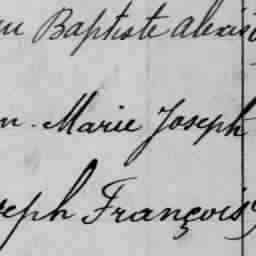 Baptiste alexis
Marie Joseph
eph François